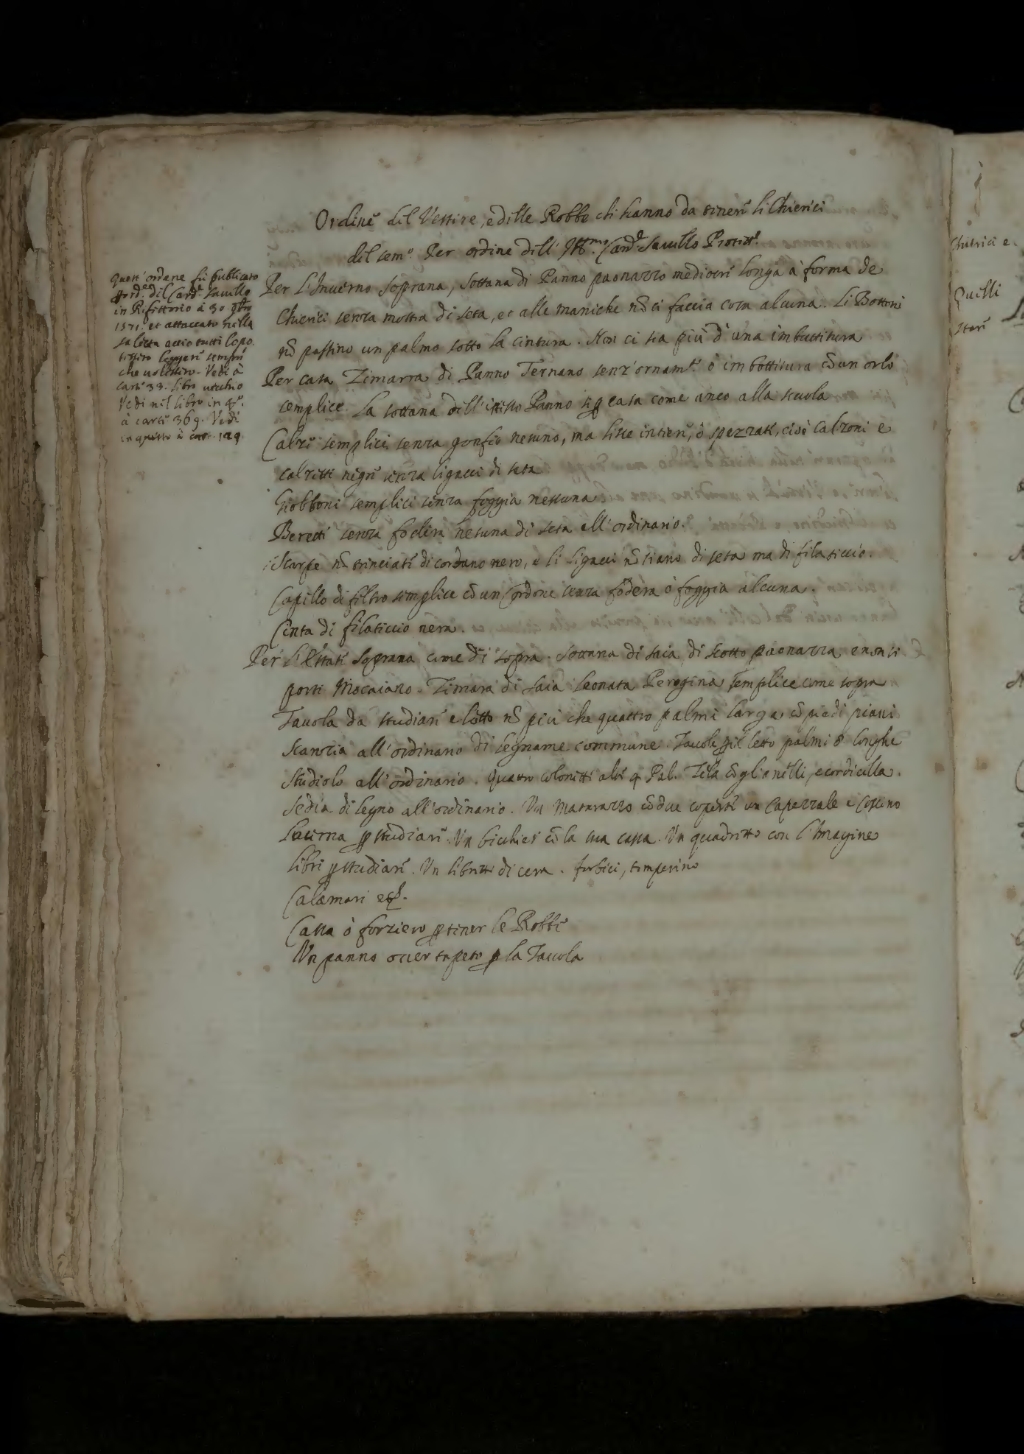 Ordine del Vestire, e delle Robbe ch hanno da tener li Chierici
del sem.º Per ordine dell' Ill.mo Card.le Savello Protet.re
Quest'ordine fù publicato
ord.e del Card.le Savello
in Refettorio à 30
1571, et attaccato nella
acciò tutti lo po
tessero leggere sempre
che volessero. Vedi à
cart. 33. libro vecchio
Vedi nel libro in 4º.
à carte 369. Vedi
in questo à car. 129
Per l'Inverno soprana, sottana di Panno paonazzo mediocre longa à forma de
Chierici senza mostra di seta, et alle maniche nõ ci faccia cosa alcuna. Li Bottoni
nõ passino un palmo sotto la cintura. Non ci sia più d'una imbastitura
Per casa Zimarra di Panno Ternano senz'ornam.to ò imbottitura cõ un orlo
semplice. La sottana dell'istesso Panno casa come anco alla scuola
Calze semplici senza gonfio nessuno, ma lisce intiere, ò spezzate, cioè calzoni e
calzetti negri senza ligacci di seta
Giobboni semplici senza foggia nessuna
Beretti senza fodera nesuna di seta all'ordinario.
Scarpe nõ trinciate di cordano nero, e li ligacci nõ siano di seta ma di filaticcio.
Capello di feltro semplice cõ un cordone senza fodera ò foggia alcuna.
Centa di filaticcio nera.
Per l'Estate soprana come di sopra. sottana di saia di scotto paonazza, e non si
porti Mocaiano. Zimara di saia leonata Peregina, semplice come sopra
Tavola da studiare e letto nõ più che quattro palmi larga cõ piedi piani
Scanzia all'ordinario di legname commune. Tavole p il letto palmi 8 longhe
Studiolo all'ordinario. quatro colonette alte 9 Pal. Tela cõ gli anelli, e cordicella.
Sedia di legno all'ordinario. Un Matarazzo cõ due coperte un Capezzale e Coscino
Lucerna p studiare. Un bicchier cõ la sua cassa. Un quadretto con l'Imagine
libri p studiare. Un libretto di cera. forbici, temperino
Calamari etc.
Cassa ò forziero p tener le Robbe
Un panno over tapeto p la Tavola
Chierici e
Quelli